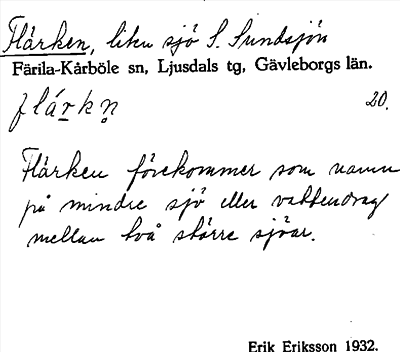 Flärken, liten sjö S. Sundsjön
Färila-Kårböle sn, Ljusdals tg, Gävleborgs län.
flárkn̥ 20.
Flärken förekommer som namn
på mindre sjö eller vattendrag
mellan två större sjöar.
Erik Eriksson 1932.